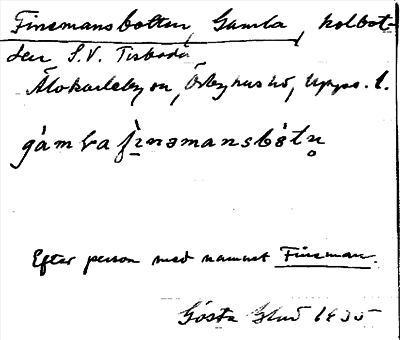 Finsmansbottnn, Gamla, kolbot-
ten S.V. Tisboda
Älvkarleby sn, Örbyhus hd, Upps. l.
gàmḷa fìnsmansbòtn̥
Efter person med namnet Finsman.
Gösta Glad 1935